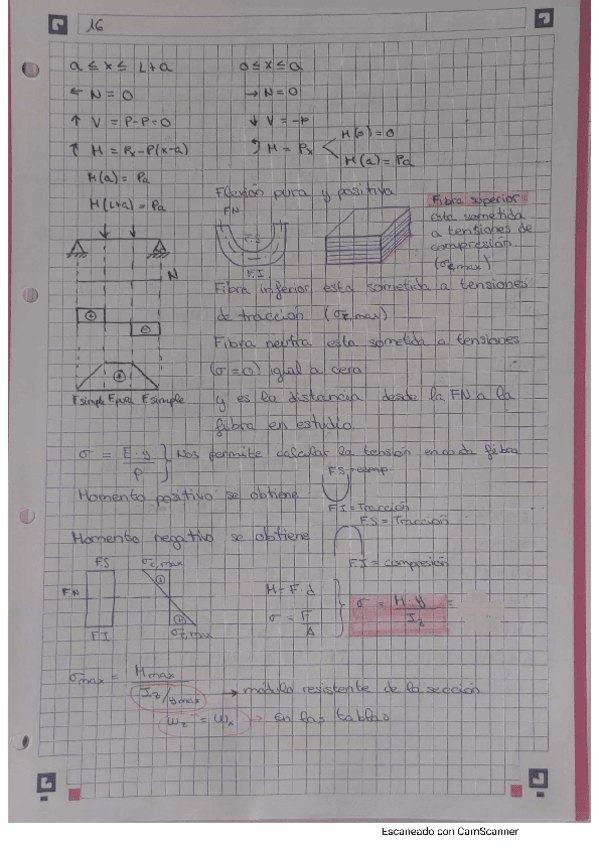 16
a ≤ x ≤ L+a
← N = 0
↑ V = P-P = 0
↑ M = Px - P(x-a)
M(a) = Pa
M(L+a) = Pa
0 ≤ x ≤ a
→ N = 0
↓ V = -P
M = Px
M(0) = 0
M(a) = Pa
N
F simple F pura F simple
Flexión pura y positiva
FN
F.S
F.I
Fibra superior
esta sometida
a tensiones de
compresión
(σc,max)
Fibra inferior esta sometida a tensiones
de tracción (σt,max)
Fibra neutra esta sometida a tensiones
(σ=0) igual a cero
y es la distancia desde la FN a la
fibra en estudio.
σ = E·y / ρ } Nos permite calcular la tensión en cada fibra
Momento positivo se obtiene
F.S = comp
F.I = Tracción
Momento negativo se obtiene
F.S = Tracción
F.I = compresión
F.S
F.N
F.I
σc,max
σt,max
M = F·d
σ = F / A
σ = M·y / Iz =
σmax = Mmax / Iz/ymax → módulo resistente de la sección
Wz = Wx → en las tablas
Escaneado con CamScanner